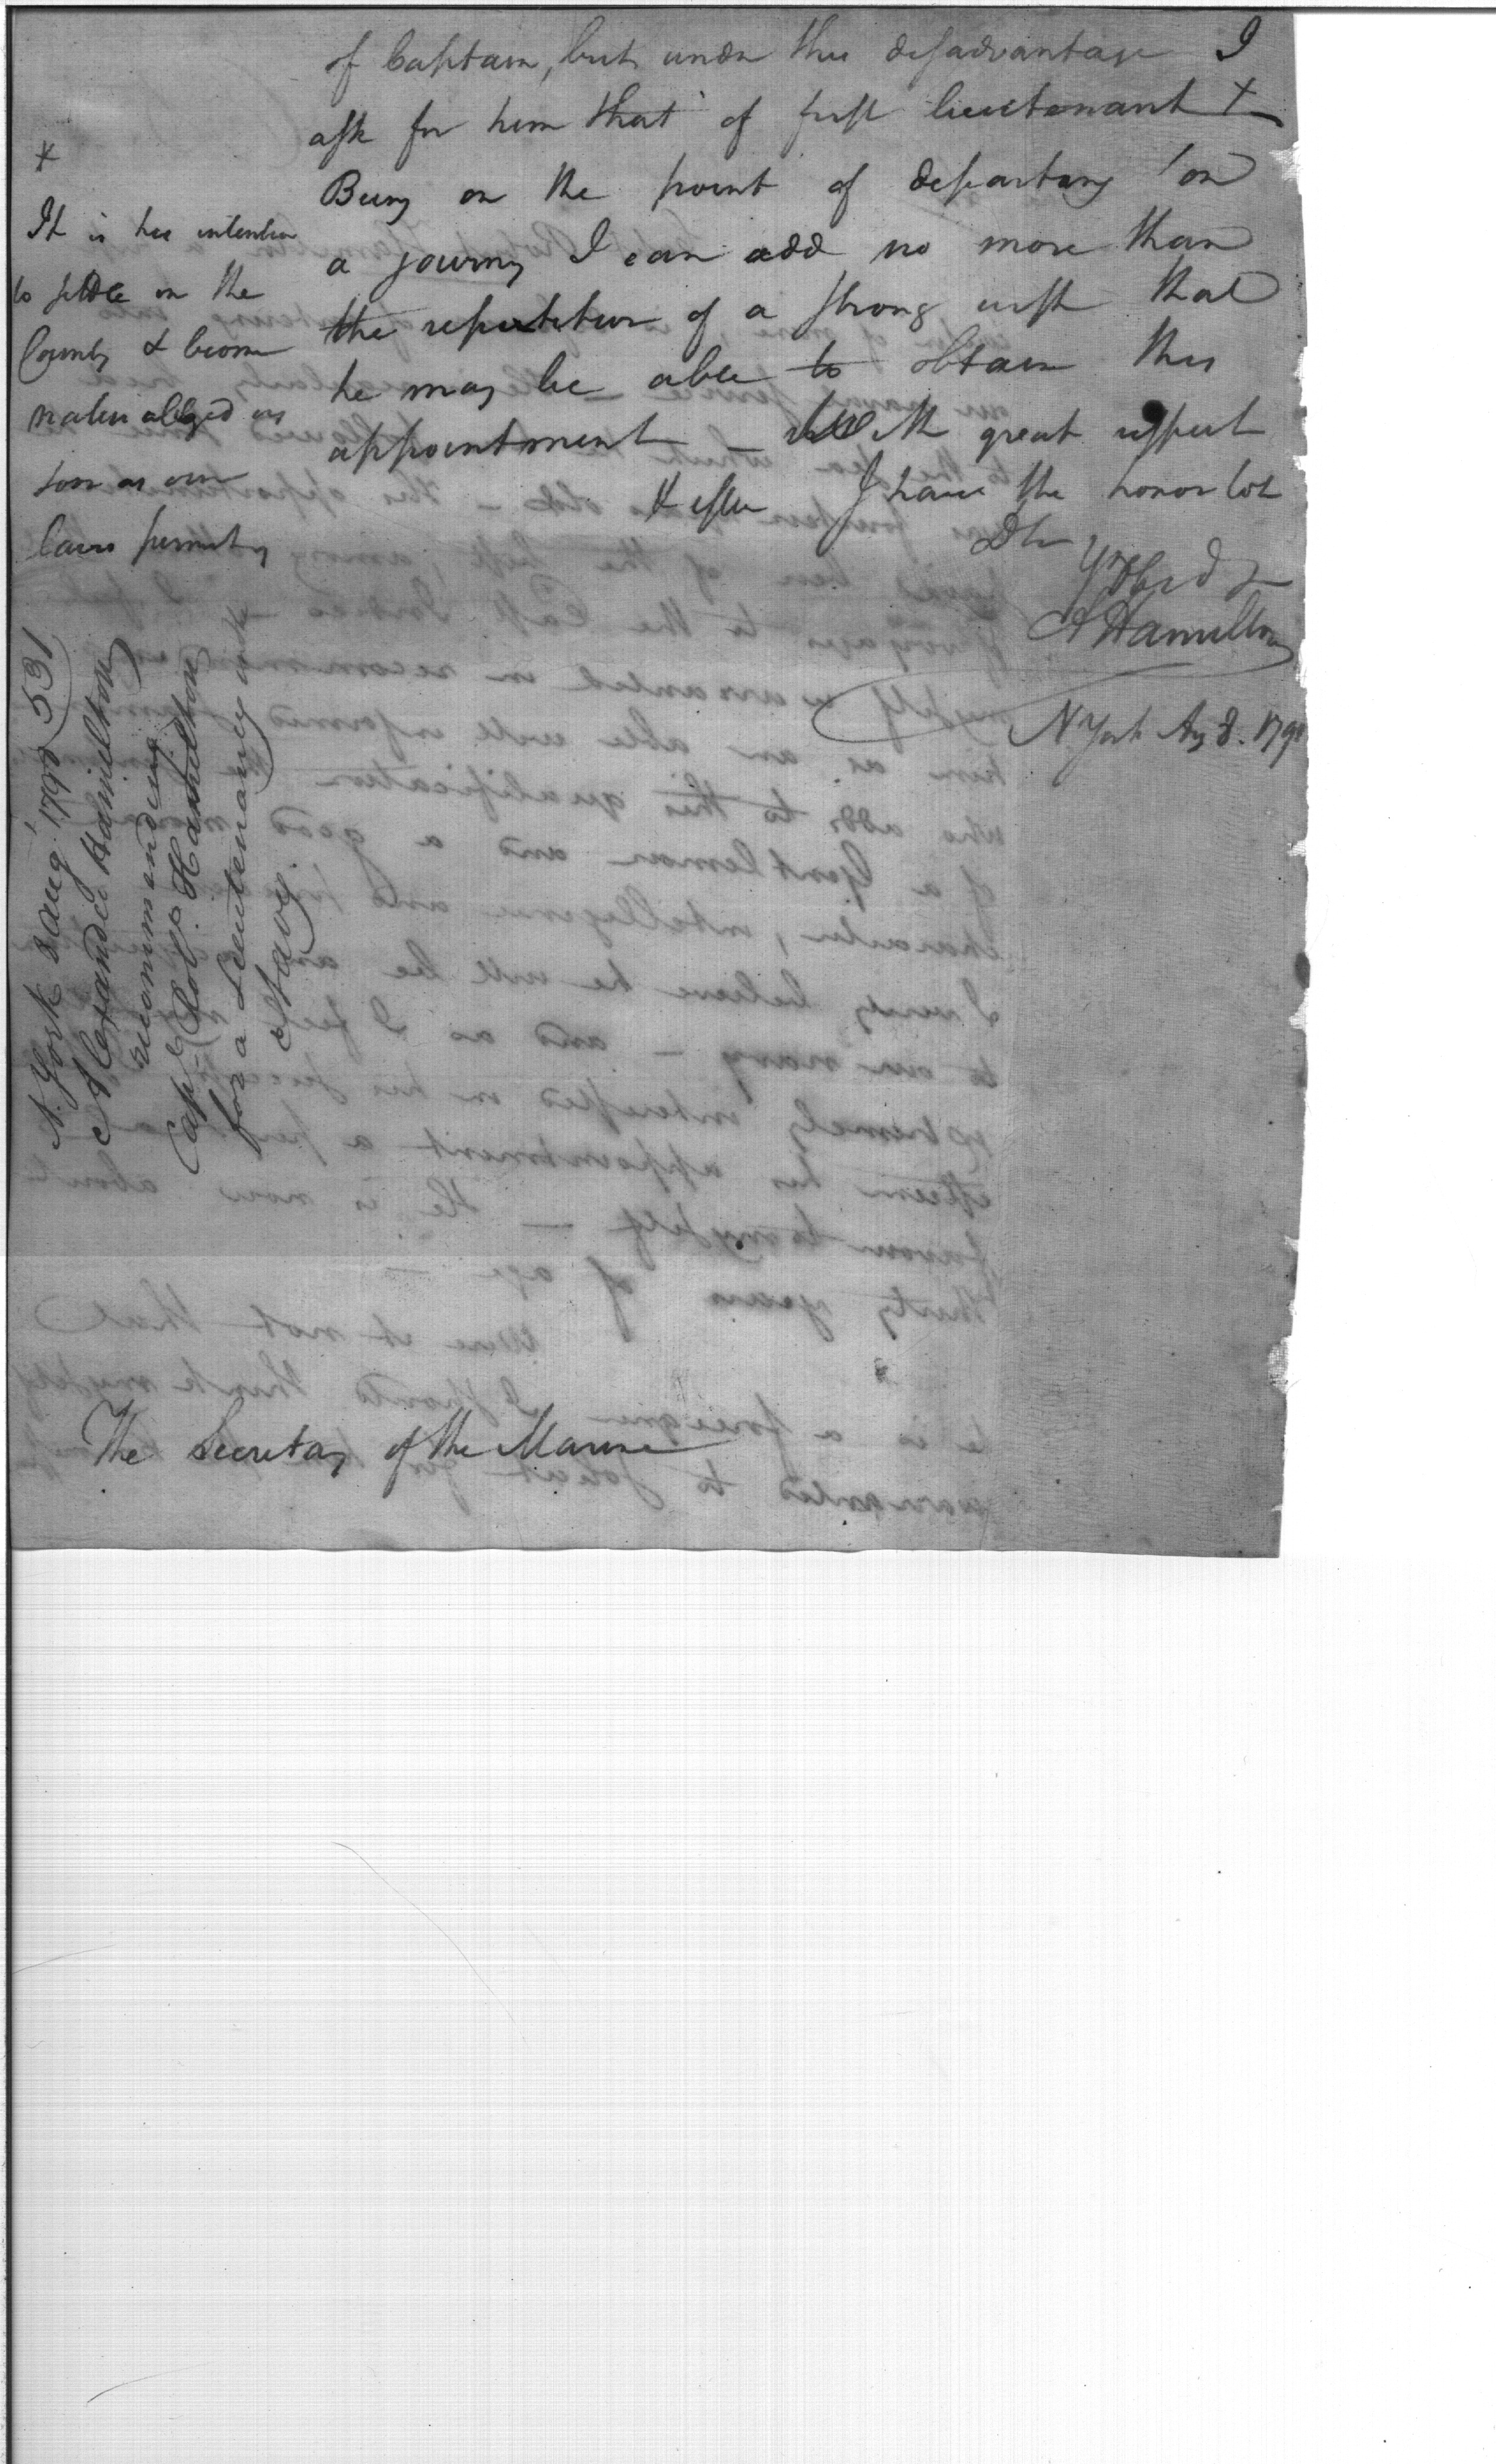 of Captain, but under this disadvantage I
ask for him that of first lieutenant +
Being on the point of departing on
a journey I can add no more than
the repetition of a strong wish that
he may be able to obtain this
appointment — With great respect
& esteem I have the honor to be
Dr Sir
Yr Obed s
A Hamilton
N York Aug 8. 1798
+
It is his intention
to settle in the
Country & become
naturalized as
soon as our
laws permit
N. York 8 Aug. 1798 531
Alexander Hamilton
recommending
Capt. Robt. Hamilton
for a Lieutenancy in the
Navy.
The Secretary of the Marine